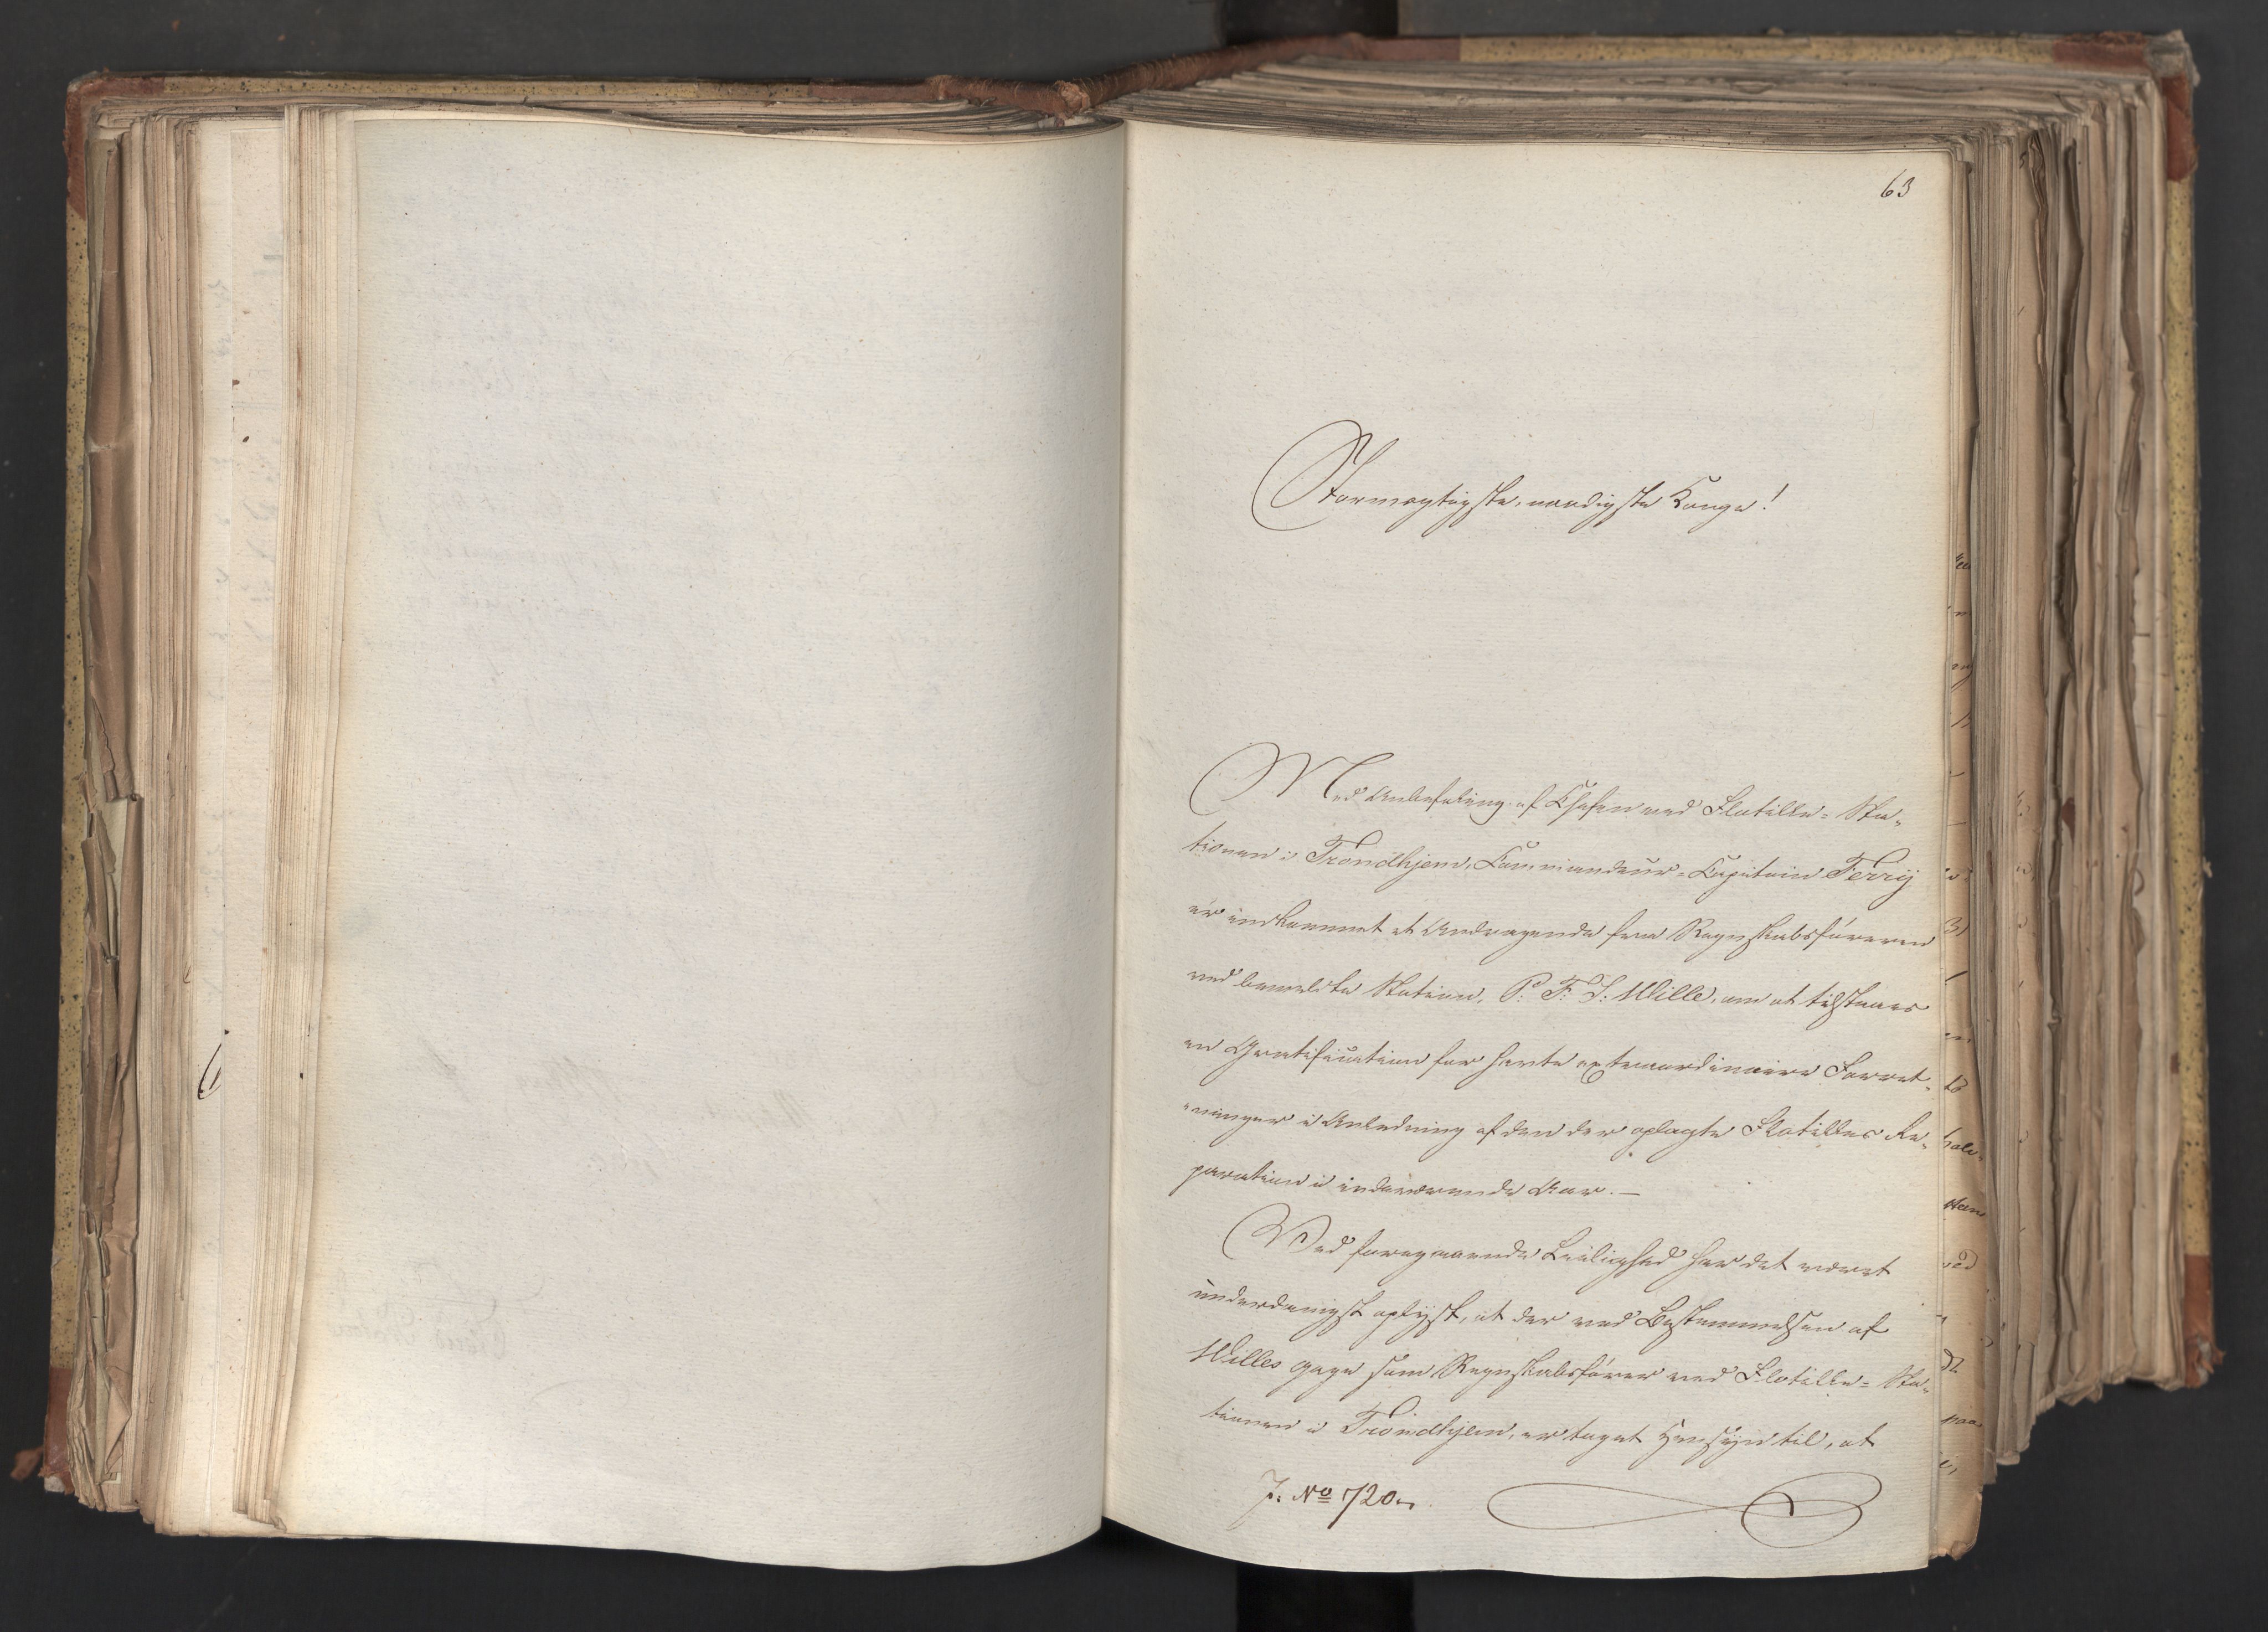 63
Stormægtigste, naadigste Konge!
Med Anbefaling af Chefen ved Flotille-Sta-
tionen i Trondhjem, Commandeur-Capitain Ferry
er indkommet et Andragende fra Regnskabsføreren
ved bemeldte Station, P. F. S. Wille, om at tilstaaes
en Gratification for havte extraordinaire Forret-
ninger i Anledning af den der oplagte Flotilles Re-
paration i indeværende Aar.—
Ved foregaaende Leilighed har det været
underdanigst oplyst, at der ved Bestemmelsen af
Willes Gage som Regnskabsfører ved Flotille-Sta-
tionen i Trondhjem, er taget Hensyn til, at
J. No 720